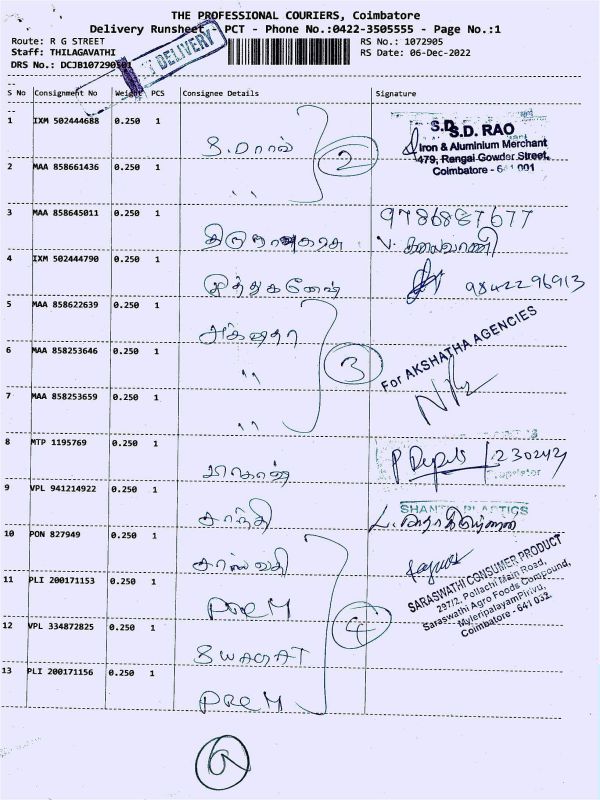 THE PROFESSIONAL COURIERS, Coimbatore
Delivery Runsheet - PCT - Phone No.:0422-3505555 - Page No.:1
Route: R G STREET RS No.: 1072905
Staff: THILAGAVATHI RS Date: 06-Dec-2022
DRS No.: DCJB107290501
DELIVERY
S No Consignment No Weight PCS Consignee Details Signature
1 IXM 502444688 0.250 1 S.ராவ்
2
S.D. RAO
Iron & Aluminium Merchant
479, Rangai Gowder Street,
Coimbatore - 641 001
2 MAA 858661436 0.250 1 ''
3 MAA 858645011 0.250 1 9786887677
V. கலைவாணி
4 IXM 502444790 0.250 1 முத்துகணேஷ் 9842296913
5 MAA 858622639 0.250 1 அக்ஷதா
3
For AKSHATHA AGENCIES
6 MAA 858253646 0.250 1 ''
7 MAA 858253659 0.250 1 ''
8 MTP 1195769 0.250 1
9 VPL 941214922 0.250 1 சாந்தி
SHANTI PLASTICS
10 PON 827949 0.250 1 சரஸ்வதி
4
SARASWATHI CONSUMER PRODUCT
297/2, Pollachi Main Road,
Saraswathi Agro Foods Compound,
MyleripalayamPirivu,
Coimbatore - 641 032.
11 PLI 200171153 0.250 1 PREM
12 VPL 334872825 0.250 1 SWAGAT
13 PLI 200171156 0.250 1 PREM